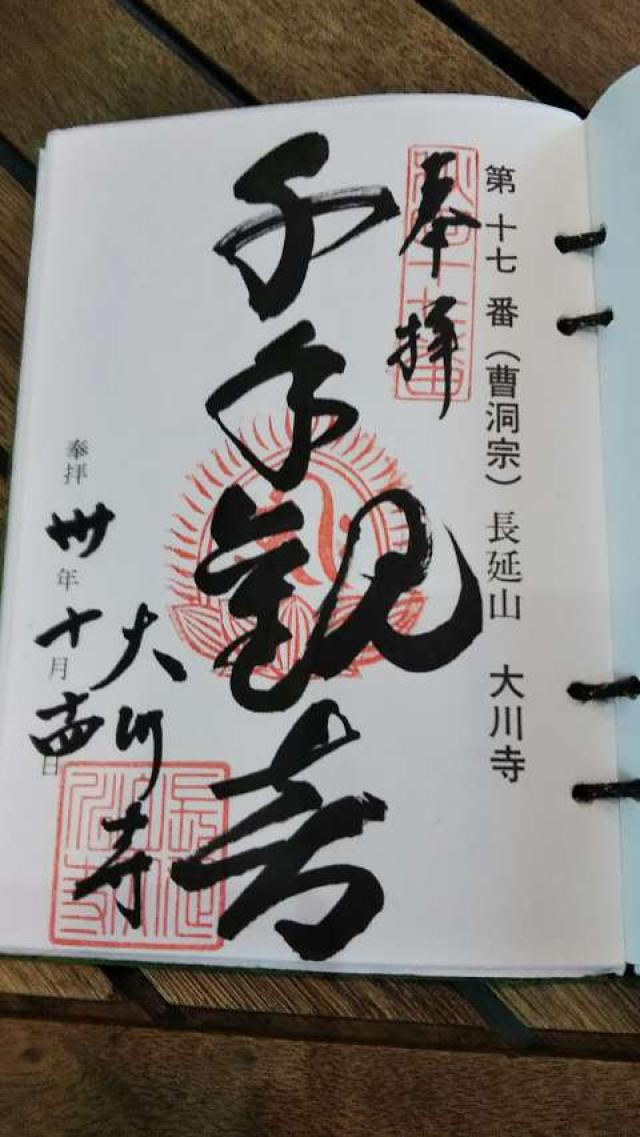 第十七番（曹洞宗）長延山 大川寺
奉拝
千手観音
大川寺
奉拝 卅年十月十四日